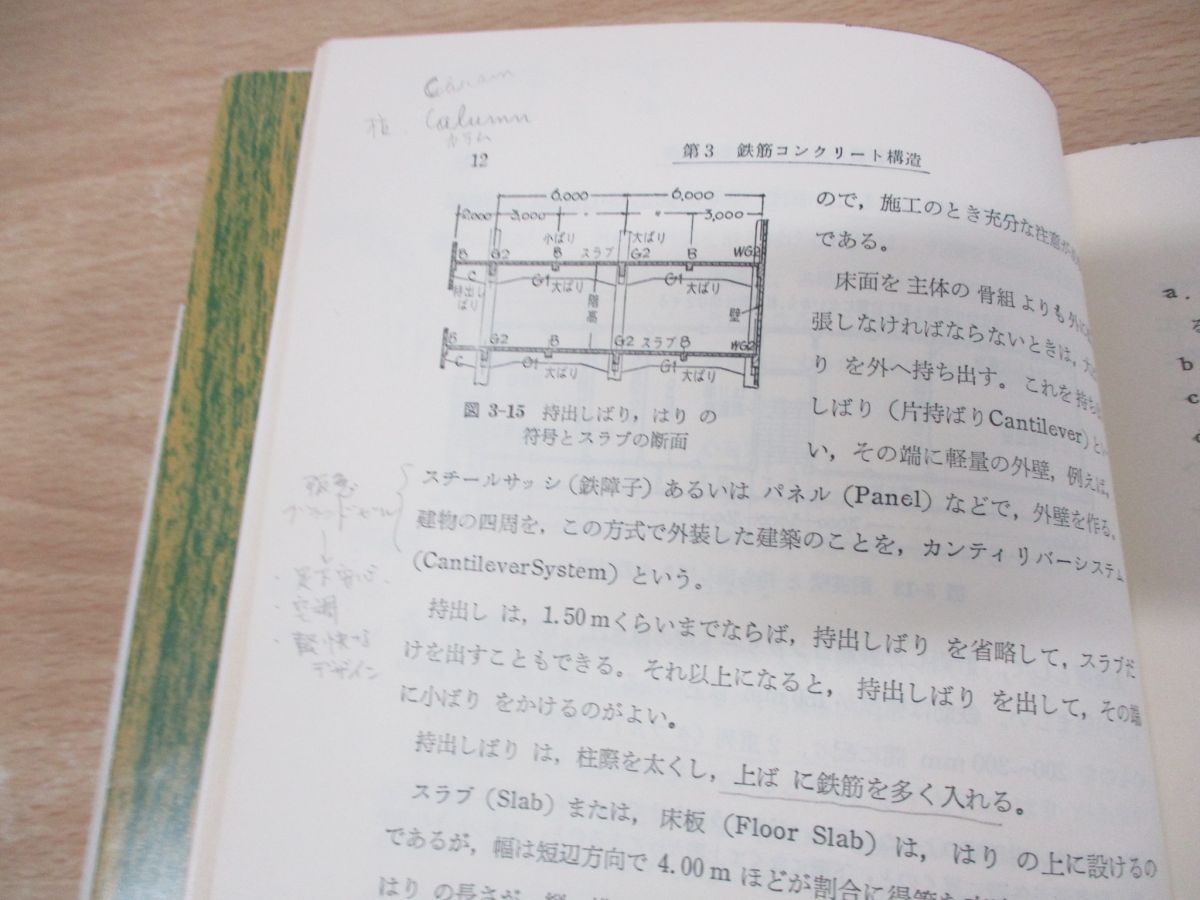 Column
カラム
12
第3 鉄筋コンクリート構造
6,000 6,000
2,000 3,000 3,000
小ばり 大ばり
B G2 B スラブ G2 B WG2
C G1 大ばり G1 大ばり
持出し
ばり
階高
壁
B G2 B G2 スラブ B WG2
C G1 大ばり G1 大ばり
図 3-15 持出しばり，はり の
符号とスラブの断面
ので，施工のとき充分な注意が
である。
床面を 主体の 骨組 よりも 外に
張しなければならないときは，
り を外へ持ち出す。これを 持ち
しばり（片持ばりCantilever）と
い，その端に軽量の外壁，例えば，
スチールサッシ（鉄障子）あるいは パネル（Panel）などで，外壁を作る。
建物の四周を，この方式で外装した建築のことを，カンティリバーシステム
（CantileverSystem）という。
持出し は，1.50mくらいまでならば，持出しばり を省略して，スラブだ
けを出すこともできる。それ以上になると，持出しばり を出して，その端
に小ばり をかけるのがよい。
持出しばり は，柱際を太くし，上ば に鉄筋を多く入れる。
スラブ（Slab）または，床板（Floor Slab）は，はり の上に設けるの
であるが，幅は短辺方向で 4.00m ほどが割合に得策
はり の長さが
・空調
・軽快な
デザイン
a.
b
c